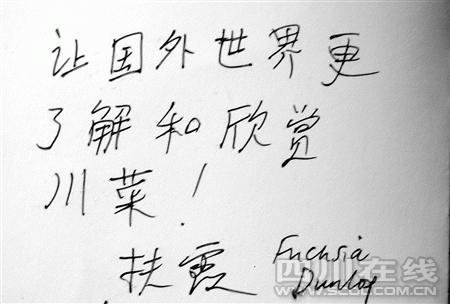 让国外世界更
了解和欣赏
川菜！
扶霞 Fuchsia
Dunlop
四川在线
www.scol.com.cn